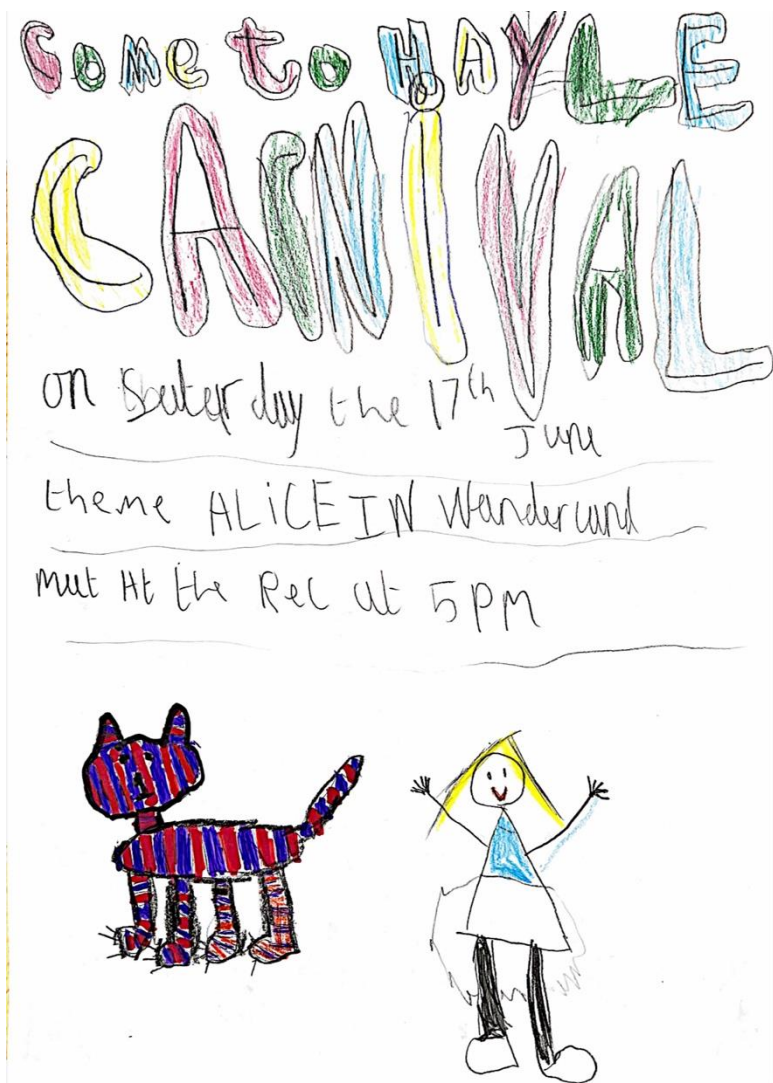 Come to HAYLE
CArNiVAL
on Saterday the 17th
June
theme ALiCE IN Wanderland
meet At the Rec at 5PM